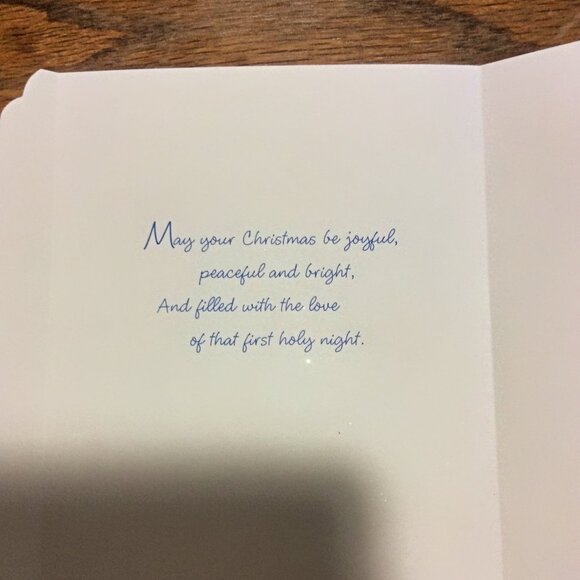 May your Christmas be joyful,
peaceful and bright,
And filled with the love
of that first holy night.